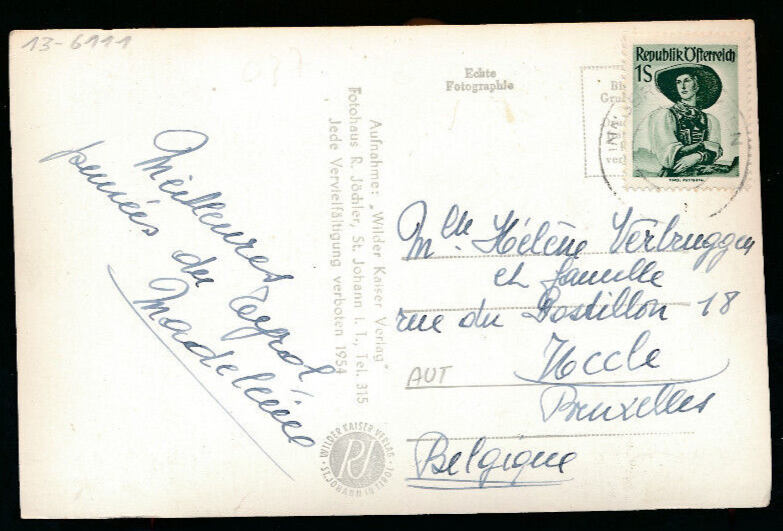 13-6111
Meilleures
pensées du Tyrol
Madeleine
Aufnahme: „Wilder Kaiser Verlag"
Fotohaus R. Jöchler, St. Johann i. T., Tel. 315
Jede Vervielfältigung verboten 1954
WILDER KAISER VERLAG
ST. JOHANN IN TIROL
RJ
Echte
Fotographie
Republik Österreich
1S
Mlle Hélène Verbruggen
et famille
rue du Postillon 18
AUT
Uccle
Bruxelles
Belgique